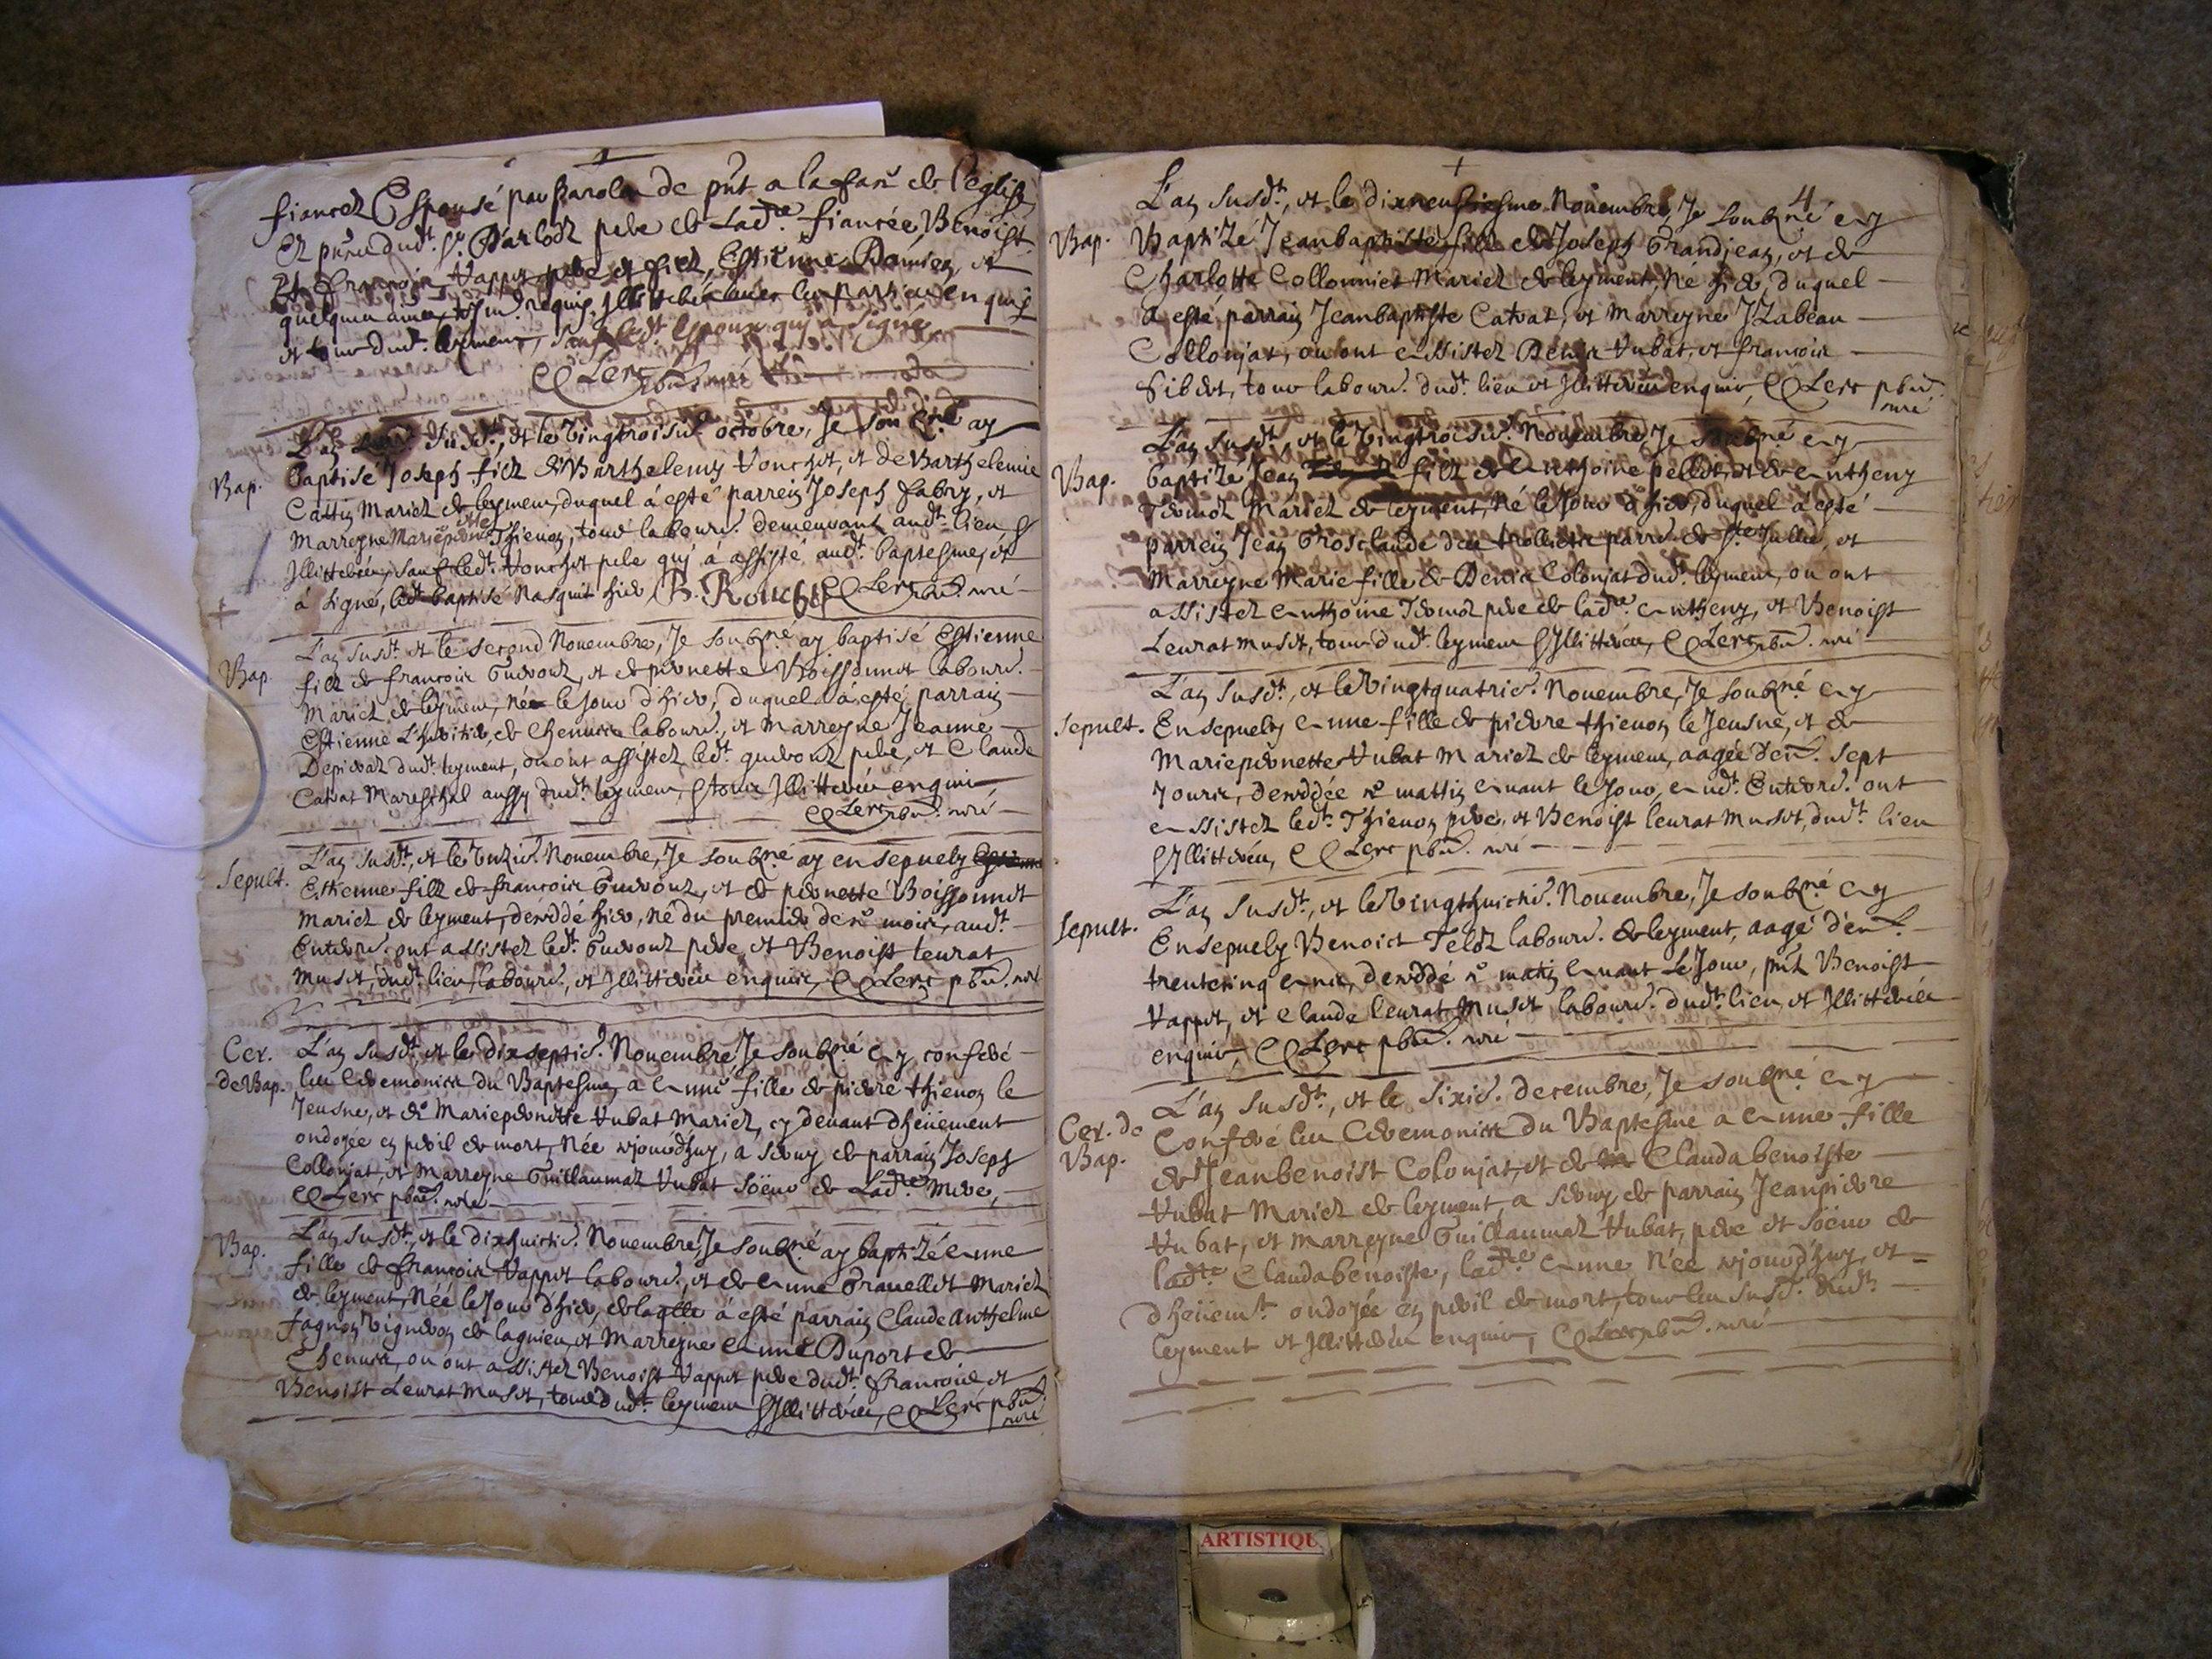 fiancez Espousé par Parolle de pñt a la face de l'église
Et pñce dudt. Sr. Parlodz pere de Ladte. fiancée, Benoist
Et francois Vappet pere et filz, Estienne Damien, et
quelques autres tesm. requis, Illitterés avec les parties enquis
et tous dudt. leyment, sauf ledt. Espoux qui a signé
Clerc pbre. curé
L'an susdt., et le vingtroisie. octobre, Je soubzné ay
Bap.
baptisé Joseph filz de Barthelemy Vonchet, et de Barthelemie
Cattin Mariez de leyment, duquel á esté parrein Joseph fabry, et
Marreyne Marie pernette Thienon, tous labourr. demeurant audt. lieu &
Illitterés, sauf ledt. Vonchet pere quj á assisté audt. baptesme, et
á signé, ledt. baptisé Nasquit hier, B. Rouchet Clerc pbr. curé
Bap.
L'an susdt. et le second Novembre, Je soubzné ay baptisé Estienne
filz de francois Guerouz, et de pernette Boissonnet labourr.
Mariez de leyment, née le Jour d'hier, duquel á esté parrain
Estienne L'heritier, de Chenuire labourr., et Marreyne Jeanne
Depieraz dudt. leyment, ou ont assistez ledt. guerouz pere, et Claude
Catvat Mareschal aussy dudt. leyment, & tous Illitterés enquis
Clerc pbr. curé
Sepult.
L'an susdt., et le Unzie. Novembre, Je soubzné ay ensepuely
Estienne fillz de francois Guerouz, et de pernette Boissonnet
Mariez de leyment, déceddé hier, né du premier de ce mois, audt.
Enterrt. ont assistez ledt. Guerouz pere, et Benoist leurat
Muset, dudt. lieu, labourr., et Illitterés enquis, Clerc pbr. curé
Cer.
de Bap.
L'an susdt. et le dixseptie. Novembre Je soubzné ay conferé
les Ceremonies du Baptesme, a Anne fille de pierre thienon le
Jeusne, et de Mariepernette Vubat Mariez, cy devant dheüement
ondoyée en peril de mort, Née ajourd'huy, á servy de parrain Joseph
Collonjat, et Marreyne Guillaumaz Vubat soeur de Ladte. Mere,
Clerc pbr. curé
Bap.
L'an susdt., et le dixhuictie. Novembre, Je soubzné ay baptizé Anne
fille de francois Vappet labourr., et de Anne Gravellet Mariez
de leyment, Née le Jour d'hier, de laqlle á esté parrain Claude Anthelme
fagnon Vigneron de lagnieu, et Marreyne Anne Duport de
Chenuire, ou ont assistez Benoist Vappet pere dudt. francois, et
Benoist Leurat Muset, tous dudt. leyment & Illitterés, Clerc pbr.
curé
4
L'an susdt., et le dixneufiesme Novembre, Je soubzné ay
Bap.
Baptizé Jeanbaptiste filz de Joseph Grandjean, et de
Charlotte Collonnier Mariez de leyment, Né hier, duquel
a esté, parrain Jeanbaptiste Catvat, et Marreyne IZabeau
Collonjat, ou ont assistez Denis Vubat, et francois
Sibert, tous labourr. dudt. lieu et Illitterés enquis, Clerc pbr.
curé
L'an susdt., et le Vingtroisie. Novembre, Je soubzné ay
Bap.
baptizé Jean filz de Anthoine pellet, et de Antheny
Mariez de leyment, Né le Jour d'hier, duquel á esté
parrein Jean Grosclaude des trolliere parr. de Ste. Jullie, et
Marreyne Marie fille de Denis Colonjat dudt. leyment, ou ont
assistez Anthoine pere de ladte. Antheny, et Benoist
Leurat Muset, tous dudt. leyment & Illitterés, Clerc pbr. curé
L'an susdt., et le Vingtquatrie. Novembre, Je soubzné ay
Sepult.
Ensepuely Anne fille de pierre thienon le Jeusne, et de
Mariepernette Vubat Mariez de leyment, aagée d'env. sept
Jours, deceddée ce mattin avant le Jour, audt. Enterrt. ont
assistez ledt. Thienon pere, et Benoist leurat Muset, dudt. lieu
& Illitterés, Clerc pbr. curé
L'an susdt., et le Vingthuictie. Novembre, Je soubzné ay
Sepult.
Ensepuely Benoict labourr. de leyment, aagé d'env.
trentecinq ans, deceddé ce matin avant Le Jour, pñtz Benoist
Vappet, et Claude leurat Muset labourr. dudt. lieu, et Illitterés
enquis, Clerc pbr. curé
L'an susdt., et le sixie. decembre, Je soubzné ay
Cer. de
Bap.
Conferé les Ceremonies du Baptesme a Anne fille
de Jeanbenoist Colonjat, et de Claudabenoiste
Vubat Mariez de leyment, a servy de parrain Jeanpierre
Vubat, et Marreyne Guillaumaz Vubat, pere et soeur de
ladte. Claudabenoiste, ladte. Anne Née ajourd'huy, et
dheüemt. ondoyée en peril de mort, tous les susdt. dudt.
leyment et Illitterés enquis, Clerc pbr. curé
ARTISTIQU